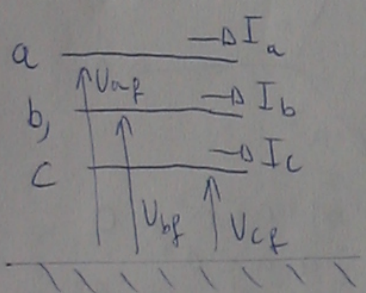 a I_a
U_af
b, I_b
c I_c
U_bf U_cf